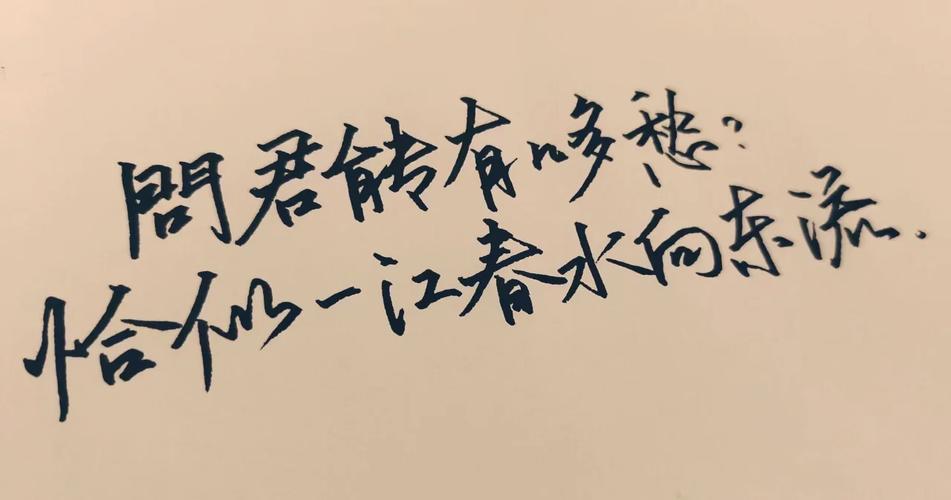 問君能有几多愁?
恰似一江春水向东流.